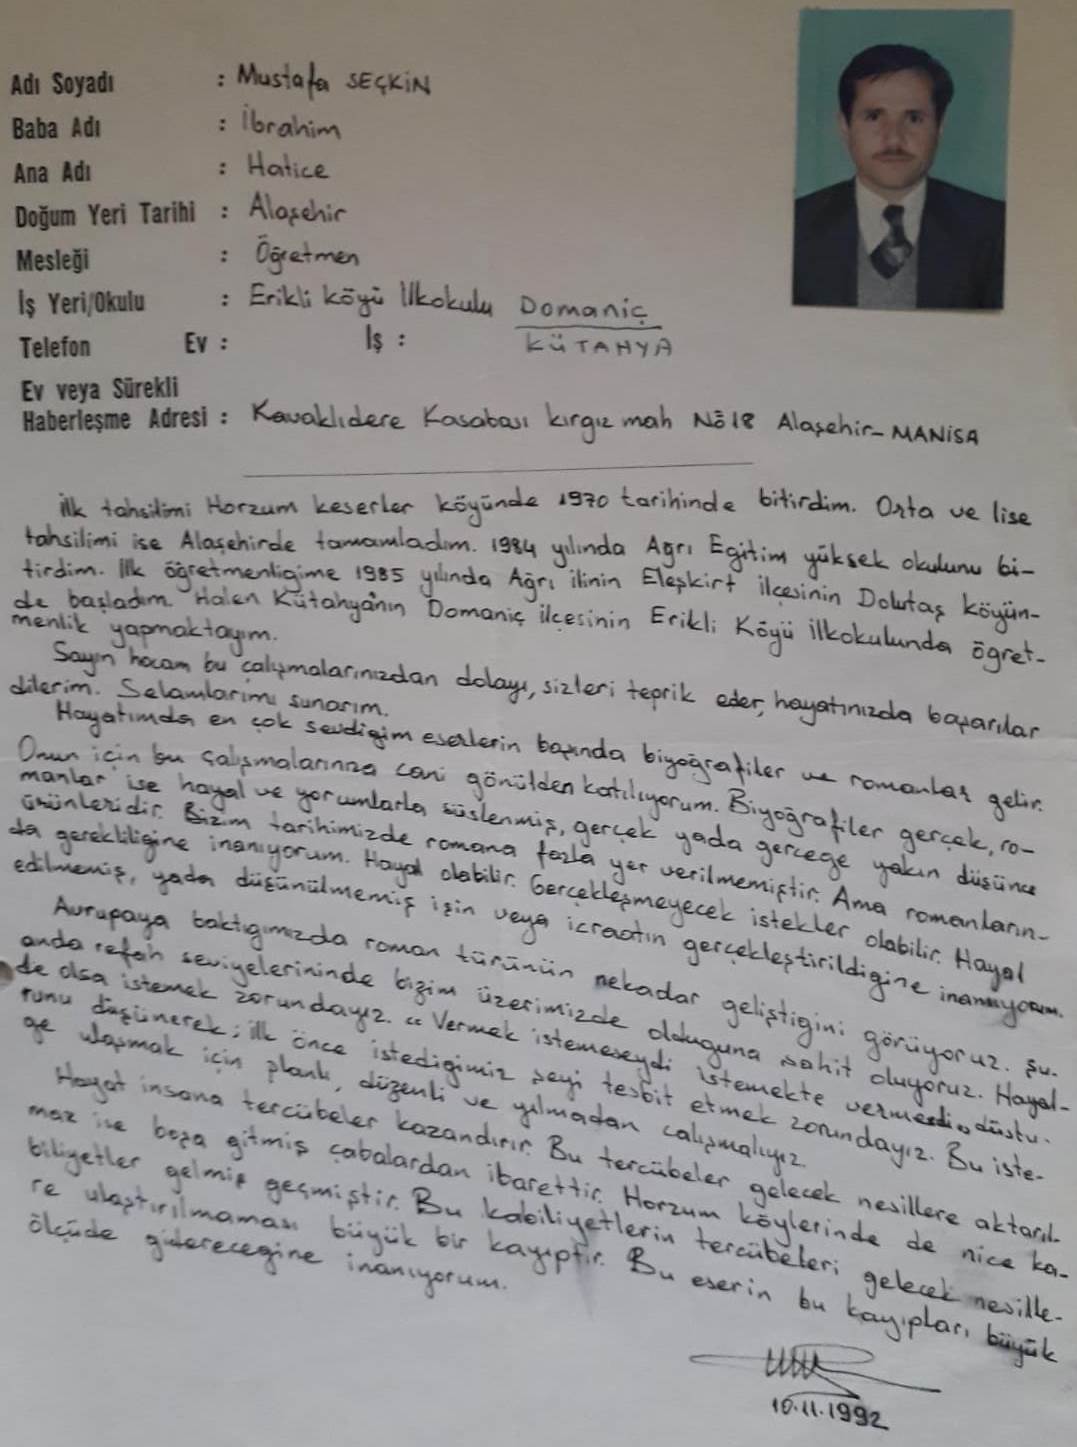 Adı Soyadı : Mustafa SEÇKİN
Baba Adı : İbrahim
Ana Adı : Hatice
Doğum Yeri Tarihi : Alaşehir
Mesleği : Öğretmen
İş Yeri/Okulu : Erikli köyü İlkokulu Domaniç
Telefon Ev : İş : KÜTAHYA
Ev veya Sürekli
Haberleşme Adresi : Kavaklıdere Kasabası kırgız mah Nö 18 Alaşehir-MANİSA
İlk tahsilimi Horzum keserler köyünde 1970 tarihinde bitirdim. Orta ve lise
tahsilimi ise Alaşehirde tamamladım. 1984 yılında Ağrı Egitim yüksek okulunu bi-
tirdim. İlk öğretmenligime 1985 yılında Ağrı ilinin Eleşkirt ilçesinin Dolutaş köyün-
de başladım. Halen Kütahya'nın Domaniç ilçesinin Erikli Köyü ilkokulunda öğret-
menlik yapmaktayım.
Sayın hocam bu çalışmalarınızdan dolayı, sizleri teprik eder, hayatınızda başarılar
dilerim. Selamlarımı sunarım.
Hayatımda en çok sevdigim eserlerin başında biyoğrafiler ve romanlar gelir.
Onun için bu çalışmalarınıza cani gönülden katılıyorum. Biyoğrafiler gerçek, ro-
manlar ise hayal ve yorumlarla süslenmiş, gerçek yada gerçege yakın düşünce
ürünleridir. Bizim tarihimizde romana fazla yer verilmemiştir. Ama romanların-
da gerekliligine inanıyorum. Hayal olabilir. Gerçekleşmeyecek istekler olabilir. Hayal
edilmemiş, yada düşünülmemiş işin veya icraatın gerçekleştirildigine inanmıyorum.
Avrupaya baktıgımızda roman türünün nekadar geliştigini görüyoruz. Şu-
anda refah seviyelerininde bizim üzerimizde olduguna şahit oluyoruz. Hayal-
de olsa istemek zorundayız. "Vermek istemeseydi istemekte vermezdi" düstu-
runu düşünerek; ilk önce istedigimiz şeyi tesbit etmek zorundayız. Bu iste-
ge ulaşmak için planlı, düzenli ve yılmadan çalışmalıyız.
Hayat insana tercübeler kazandırır. Bu tercübeler gelecek nesillere aktarıl-
maz ise boşa gitmiş çabalardan ibarettir. Horzum köylerinde de nice ka-
biliyetler gelmiş geçmiştir. Bu kabiliyetlerin tercübeleri gelecek nesille-
re ulaştırılmaması büyük bir kayıptır. Bu eserin bu kayıpları büyük
ölçüde giderecegine inanıyorum.
10.11.1992